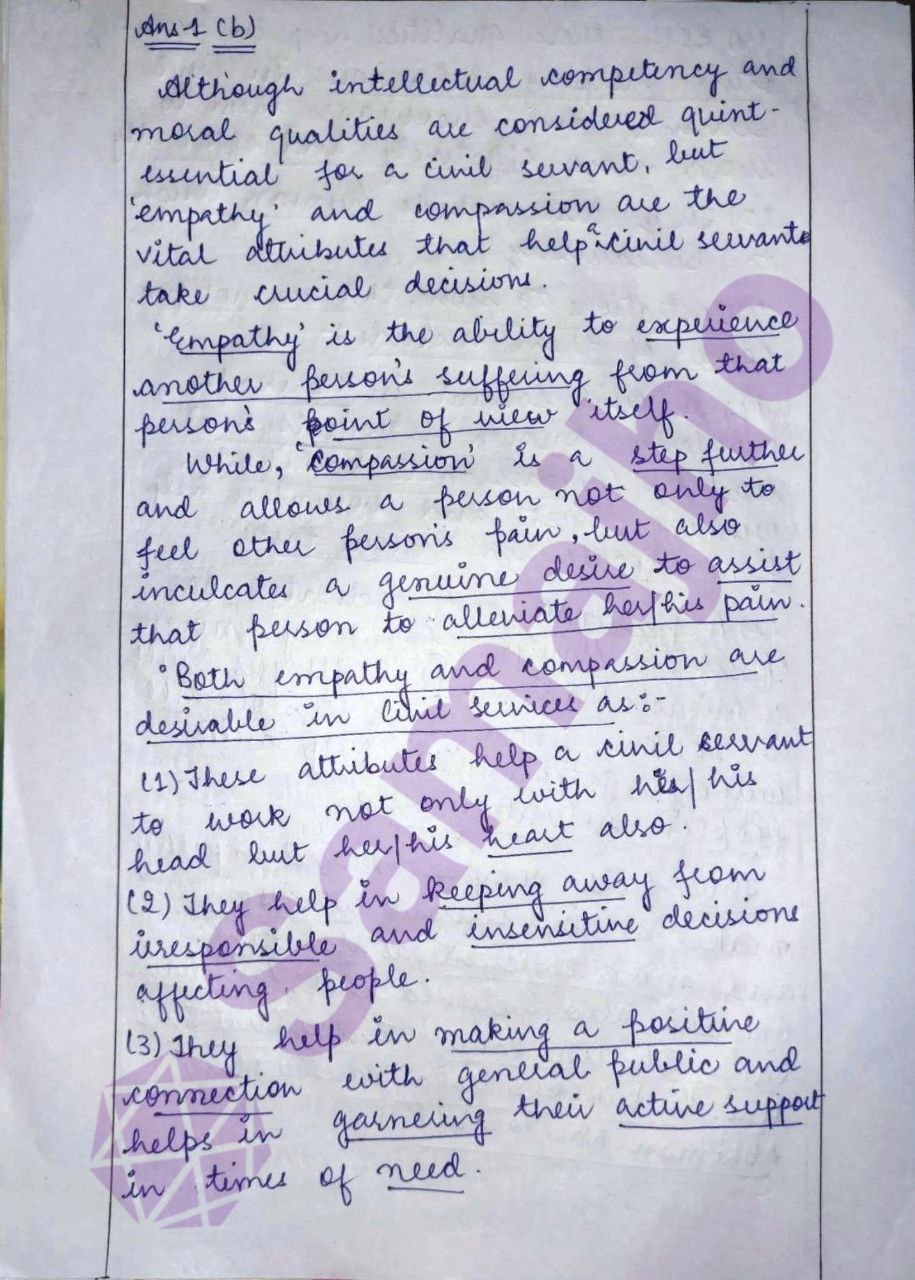 Ans-1 (b)
Although intellectual competency and
moral qualities are considered quint-
essential for a civil servant, but
'empathy' and compassion are the
vital attributes that help a civil servants
take crucial decisions.
'Empathy' is the ability to experience
another person's suffering from that
person's point of view itself.
While, 'compassion' is a step further
and allows a person not only to
feel other person's pain, but also
inculcates a genuine desire to assist
that person to alleviate her/his pain.
Both empathy and compassion are
desirable in Civil services as:-
(1) These attributes help a civil servant
to work not only with his/his
head but her/his heart also.
(2) They help in keeping away from
irresponsible and insensitive decisions
affecting people.
(3) They help in making a positive
connection with general public and
helps in garnering their active support
in times of need.
Samajho